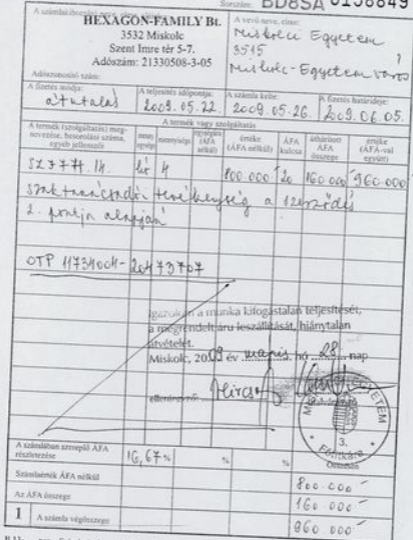 Sorszám: BD8SA 0158849
A vevő neve, címe:
HEXAGON-FAMILY Bt.
3532 Miskolc
Szent Imre tér 5-7.
Adószám: 21330508-3-05
Adóazonosító szám:
Miskolci Egyetem
3515
Miskolc-Egyetemváros
A fizetés módja:
átutalás
A teljesítés időpontja:
2009.05.22.
A számla kelte:
2009.05.26.
A fizetés határideje:
2009.06.05.
A termék vagy szolgáltatás
A termék (szolgáltatás) megnevezése, besorolási száma, egyéb jellemzői
mennyisége
egységára (ÁFA nélkül)
értéke (ÁFA nélkül)
ÁFA kulcsa
áthárított ÁFA összege
értéke (ÁFA-val együtt)
SZJ 74.14. 4 800.000 20 160.000 960.000
szaktanácsadói tevékenység a szerződés
2. pontja alapján
OTP 11734004-20473707
Igazolom a munka kifogástalan teljesítését,
a megrendelt áru leszállítását, hiánytalan
átvételét.
Miskolc, 2009 év május hó 28 nap
ellenjegyző
3.
A számlában szereplő ÁFA részletezése 16,67% % %
Összesen
Számlaérték ÁFA nélkül 800.000
Az ÁFA összege 160.000
1 A számla végösszege 960.000